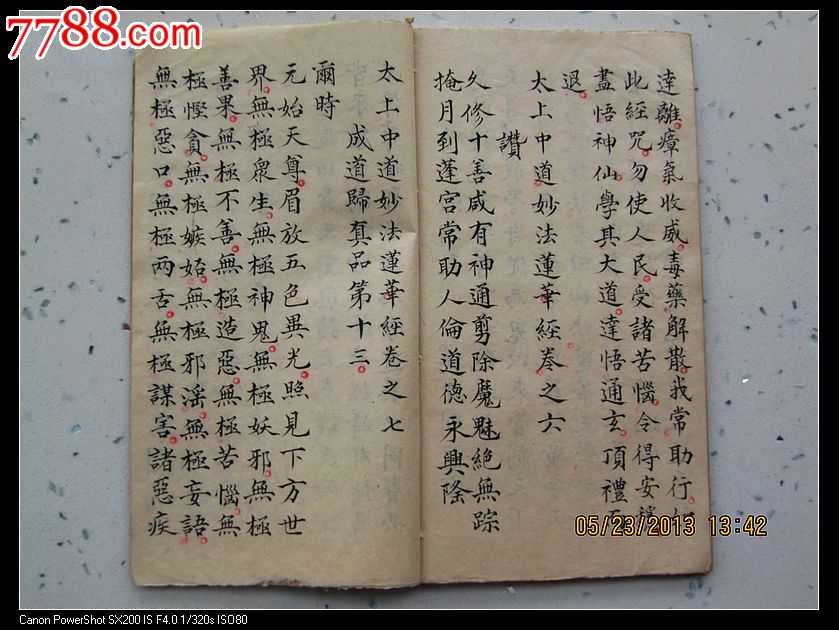 7788.com
遠離瘴氣收威毒藥解散我常助行
此經咒勿使人民受諸苦惱令得安穩
盡悟神仙學其大道達悟通玄頂禮而
退
太上中道妙法蓮華經卷之六
讚
久修十善咸有神通剪除魔魅絕無踪
掩月到蓬宮常助人倫道德永興隆
太上中道妙法蓮華經卷之七
成道歸真品第十三
爾時
元始天尊眉放五色異光照見下方世
界無極衆生無極神鬼無極妖邪無極
善果無極不善無極造惡無極苦惱無
極慳貪無極嫉妬無極邪淫無極妄語
無極惡口無極兩舌無極謀害諸惡疾
05/23/2013 13:42
Canon PowerShot SX200 IS F4.0 1/320s ISO80